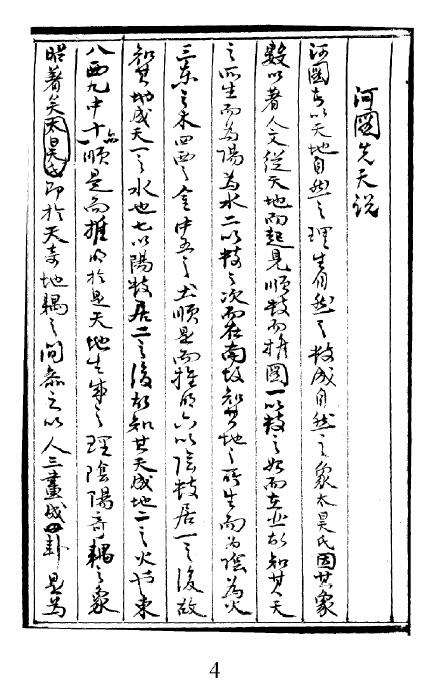 河圖先天説
河圖者以天地自然之理生自然之数成自然之象太昊氏因其象
數以著人文從天地而起見順数而推圖一以数之始而在北故知其天
之所生而為陽為水二以数之次而在南故知其地之所生而為陰為火
三東之木四西之金中五之土順是而推的六以陰数居一之後故
知其地成天一之水也七以陽数居二之後故知其天成地二之火也東
八西九中十順是而推的於是天地生成之理陰陽奇耦之象
昭著矣太昊氏即於天奇地耦之間参之以人三畫成卦是為
4